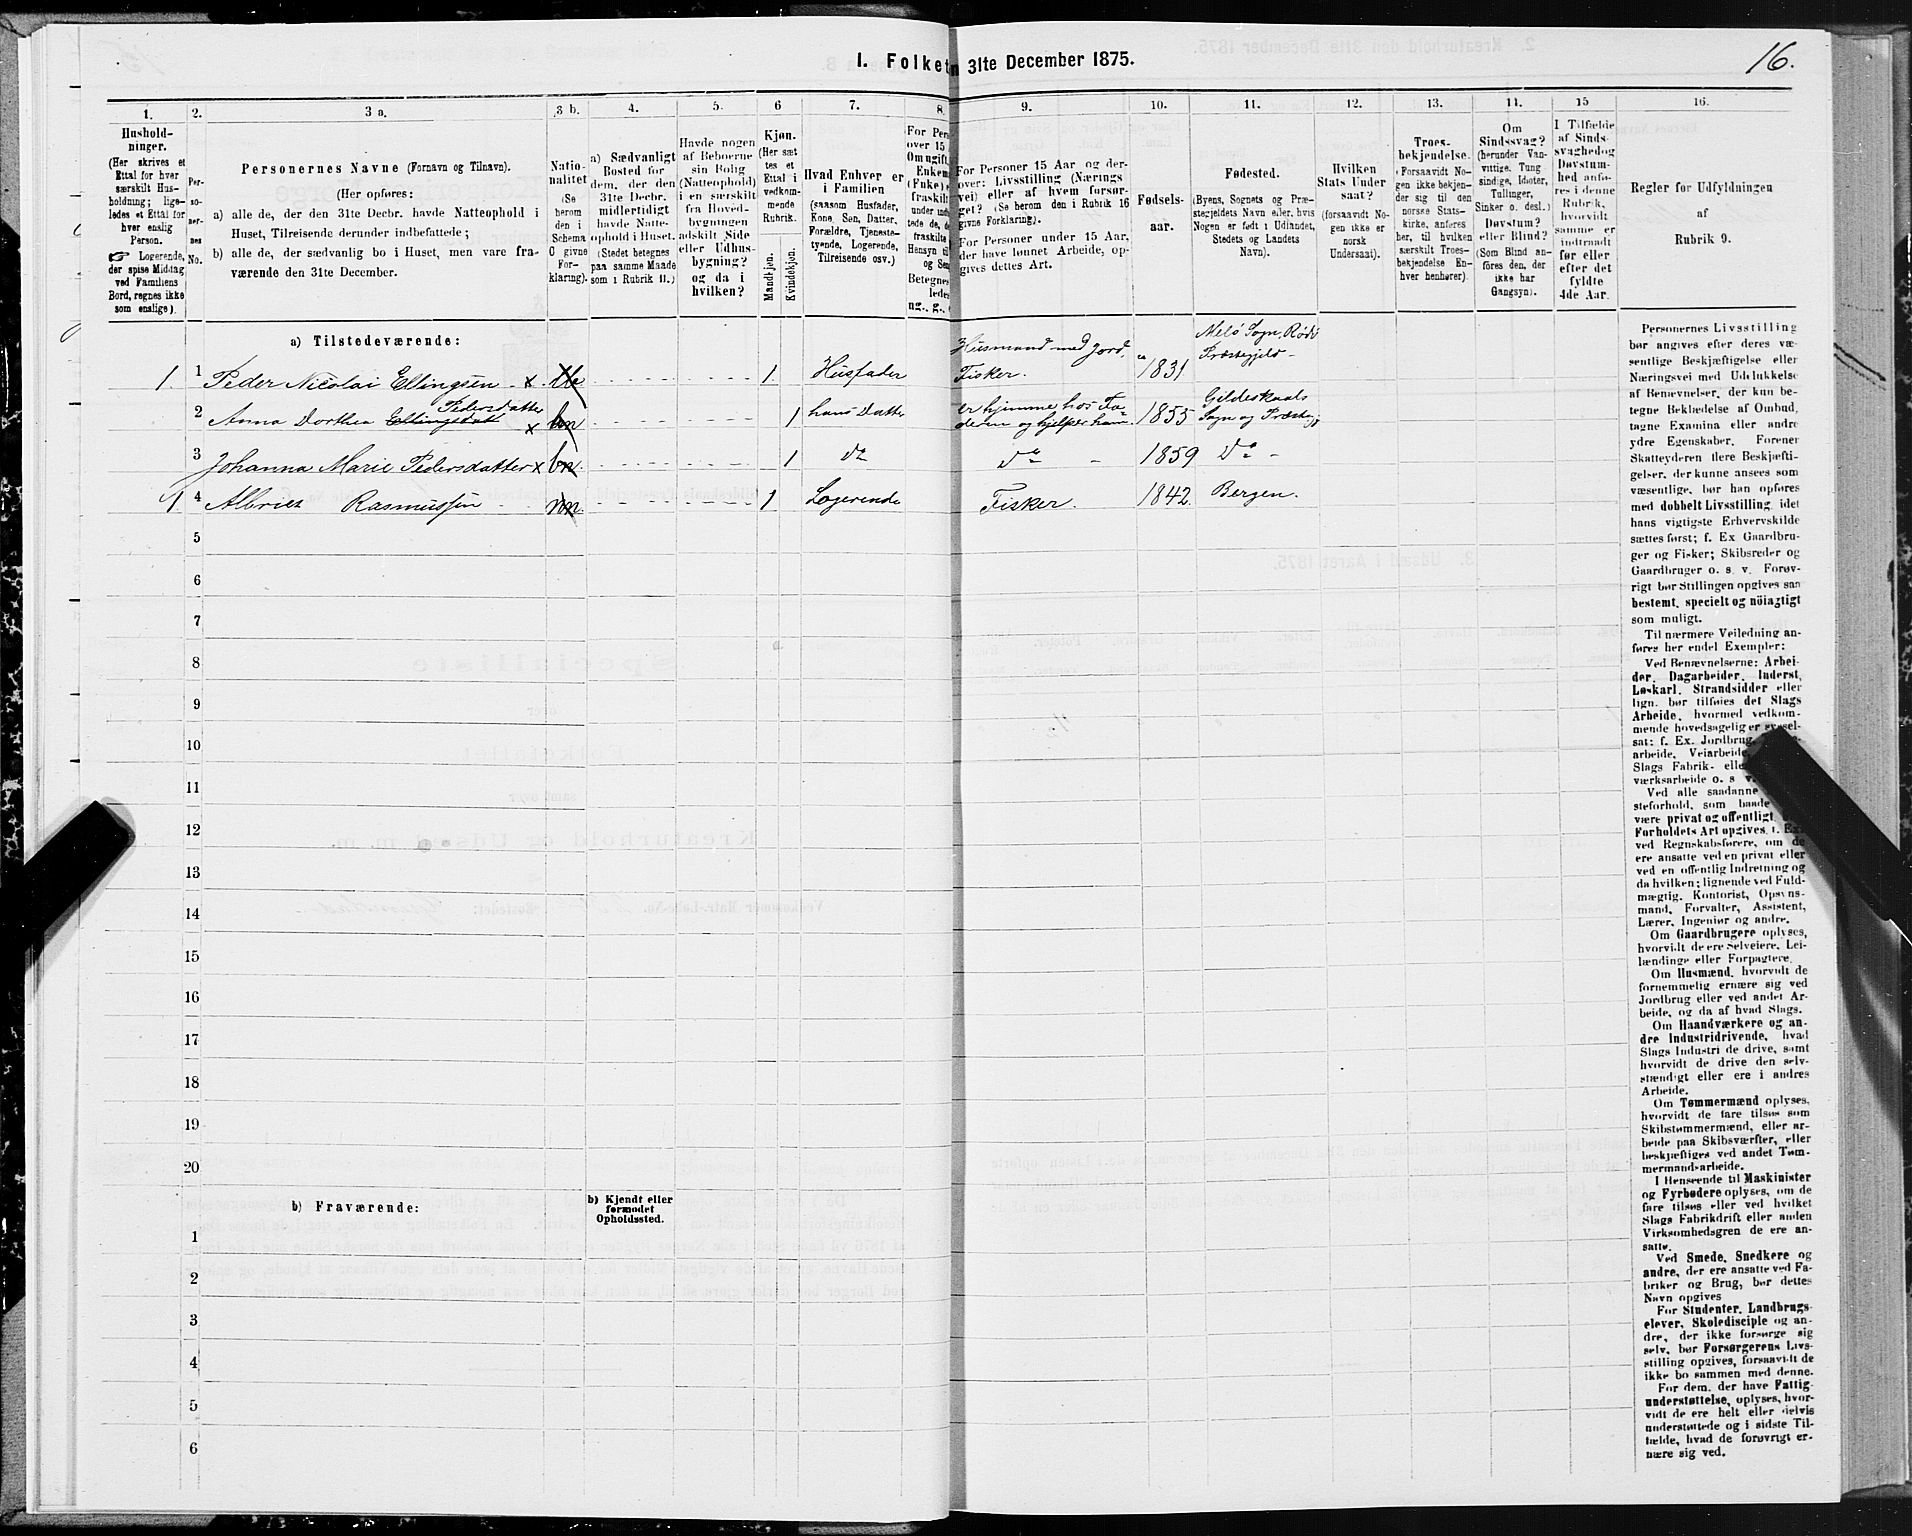 1. Folket
n 31te December 1875.
16.
1.
2.
3 a.
3 b.
4.
5.
6
7.
8.
9.
10.
11.
12.
13.
14.
15
16.
Hushold-
ninger.
(Her skrives et
Ettal for hver
særskilt Hus-
holdning; lige-
ledes et Ettal for
hver enslig
Person.
☞ Logerende,
der spise Middag
ved Familiens
Bord, regnes ikke
som enslige).
Per-
so-
ner-
nes
No.
Personernes Navne (Fornavn og Tilnavn).
(Her opføres:
a) alle de, der den 31te Decbr. havde Natteophold i
Huset, Tilreisende derunder indbefattede;
b) alle de, der sædvanlig bo i Huset, men vare fra-
værende den 31te December.
Natio-
nalitet
(Se
herom
den i
Schema
C givne
For-
klaring).
a) Sædvanligt
Bosted for
dem, der den
31te Decbr.
midlertidigt
havde Natte-
ophold i Huset.
(Stedet betegnes
paa samme Maade
som i Rubrik 11.)
Havde nogen
af Beboerne
sin Bolig
(Natteophold)
i en særskilt
fra Hoved-
bygningen
adskilt Side
eller Udhus-
bygning?
og da i
hvilken?
Kjøn.
(Her sæt
tes et
Ettal i
vedkom-
mende
Rubrik.
Mandkjøn.
Kvindekjøn.
Hvad Enhver er
i Familien
(saasom Husfader,
Kone, Søn, Datter,
Forældre, Tjeneste-
tyende, Logerende,
Tilreisende osv.)
For Pers
over 15
Om ugift,
Enkem
(Fnke)
fraskilt
under indb
tede de, d
fraskilte
Hensyn til
og Sen
Betegnes
ledes
ng., g.,
For Personer 15 Aar og der-
over: Livsstilling (Nærings
vei) eller af hvem forsør-
get? (Se herom den i Rubrik 16
givne Forklaring).
For Personer under 15 Aar,
der have lønnet Arbeide, op-
gives dettes Art.
Fødsels-
aar.
Fødested.
(Byens, Sognets og Præ-
stegjeldets Navn eller, hvis
Nogen er født i Udlandet,
Stedets og Landets
Navn).
Hvilken
Stats Under
saat?
(forsaavidt No-
gen ikke er
norsk
Undersaat).
Troes-
bekjendelse.
(Forsaavidt No-
gen ikke bekjen-
der sig til den
norske Stats-
kirke, anføres
her, til hvilken
særskilt Troes-
bekjendelse En-
hver henhører).
Om
Sindssvag?
(herunder Van-
vittige, Tung
sindige, Idioter,
Tullinger,
Sinker o. desl.)
Døvstum?
eller Blind?
(Som Blind an-
føres den, der
ikke har
Gangsyn).
I Tilfælde
af Sinds-
svaghedog
Døvstum-
hed anfø-
res i denne
Rubrik,
hvorvidt
samme er
indtraadt
før eller
efter det
fyldte
4de Aar.
Regler for Udfyldningen
af
Rubrik 9.
a) Tilstedeværende:
1. 1 Peder Nicolai Ellingsen x 1 Husfader Husmand med Jord, Fisker. 1831 Melö Sogn, Rödö Præstegjeld
2 Anna Dorthea Ellingsdat Pedersdatter x bn 1 hans Datter er hjemme hos Fa- deren og hjelper ham. 1855 Gildeskaals Sogn og Præstegj
3 Johanna Marie Pedersdatter x bn. 1 do do - 1859 do -
1 4 Albrict Rasmussen nn 1 Logerende Fisker. 1842. Bergen.
5
6
7
8
9
10
11
12
13
14
15
16
17
18
19
20
b) Fraværende:
b) Kjendt eller
formodet
Opholdssted.
1
2
3
4
5
6
Personernes Livsstilling
bør angives efter deres væ-
sentlige Beskjæftigelse eller
Næringsvei med Udelukkelse
af Benævnelser, der kun be-
tegne Beklædelse af Ombud,
tagne Examina eller andre
ydre Egenskaber. Forener
Skatteyderen flere Beskjæfti-
gelser, der kunne ansees som
væsentlige, bør han opføres
med dobbelt Livsstilling, idet
hans vigtigste Erhvervskilde
sættes først; f. Ex Gaardbru-
ger og Fisker; Skibsreder og
Gaardbruger o. s. v. Forøv-
rigt bør Stillingen opgives saa
bestemt, specielt og nöiagtigt
som muligt.
Til nærmere Veiledning an-
føres her endel Exempler:
Ved Benævnelserne: Arbei-
der, Dagarbeider, Inderst,
Løskarl, Strandsidder eller
lign. bør tilføies det Slags
Arbeide, hvormed vedkom-
mende hovedsagelig er syssel-
sat; f. Ex. Jordbrug,
arbeide, Veiarbeide,
Slags Fabrik- elle
værksarbeide o. s v.
Ved alle saadanne
steforhold, som baade
være privat og offentligt,
Forholdets Art opgives, f. Ex.
ved Regnskabsførere, om de
ere ansatte ved en privat eller
ved en offentlig Indretning og
da hvilken; lignende ved Fuld-
mægtig, Kontorist, Opsyns-
mand, Forvalter, Assistent,
Lærer, Ingeniør og andre.
Om Gaardbrugere oplyses,
hvorvidt de ere Selveiere, Lei-
lændinge eller Forpagtere.
Om Husmænd, hvorvidt de
fornemmelig ernære sig ved
Jordbrug eller ved andet Ar-
beide, og da af hvad Slags.
Om Haandværkere og an-
dre Industridrivende, hvad
Slags Industri de drive, samt
hvorvidt de drive den selv-
stændigt eller ere i andres
Arbeide.
Om Tømmermænd oplyses,
hvorvidt de fare tilsøs som
Skibstømmermænd, eller ar-
beide paa Skibsværfter, eller
beskjæftiges ved andet Tøm-
mermandsarbeide.
I Henseende til Maskinister
og Fyrbødere oplyses, om de
fare tilsøs eller ved hvilket
Slags Fabrikdrift eller anden
Virksomhedsgren de ere an-
satte.
Ved Smede, Snedkere og
andre, der ere ansatte ved Fa-
briker og Brug, bør dettes
Navn opgives
For Studenter, Landbrugs-
elever, Skoledisciple og an-
dre, der ikke forsørge sig
selv, bør Forsørgerens Livs-
stilling opgives, forsaavidt de
ikke bo sammen med denne.
For dem, der have Fattig-
understøttelse, oplyses, hvor-
vidt de ere helt eller delvis
understøttede og i sidste Til-
fælde, hvad de forøvrigt er-
nære sig ved.